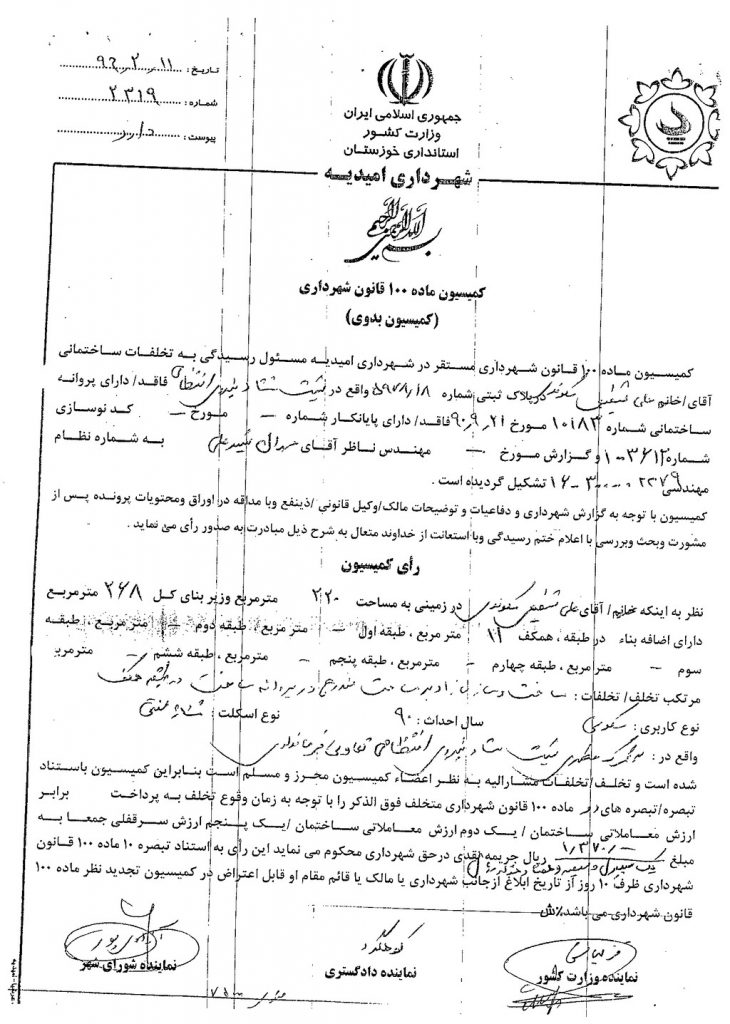 تاریخ: ۹۲٫۲٫۱۱
شماره: ۲۳۱۹
پیوست: دارد
جمهوری اسلامی ایران
وزارت کشور
استانداری خوزستان
شهرداری امیدیه
بسم الله الرحمن الرحیم
کمیسیون ماده ۱۰۰ قانون شهرداری
(کمیسیون بدوی)
کمیسیون ماده ۱۰۰ قانون شهرداری مستقر در شهرداری امیدیه مسئول رسیدگی به تخلفات ساختمانی
آقای/خانم علی در پلاک ثبتی شماره واقع در فاقد/ دارای پروانه
ساختمانی شماره ۱۰۱۸۳ مورخ ۹۰٫۹٫۲۱ فاقد/ دارای پایانکار شماره – مورخ – کد نوسازی
شماره و گزارش مورخ – مهندس ناظر آقای به شماره نظام
مهندسی تشکیل گردیده است .
کمیسیون با توجه به گزارش شهرداری و دفاعیات و توضیحات مالک/وکیل قانونی /ذینفع وبا مداقه در اوراق ومحتویات پرونده پس از
مشورت وبحث وبررسی با اعلام ختم رسیدگی وبا استعانت از خداوند متعال به شرح ذیل مبادرت به صدور رأی می نماید .
رأی کمیسیون
نظر به اینکه خانم/ آقای علی در زمینی به مساحت ۲۲۰ مترمربع وزیر بنای کل ۲۶۸ مترمربع
دارای اضافه بناء در طبقه ، همکف ۱۲ متر مربع ، طبقه اول – متر مربع ، طبقه دوم – متر مربع ، طبقه
سوم – متر مربع ، طبقه چهارم – مترمربع ، طبقه پنجم – مترمربع ، طبقه ششم – مترمربع
مرتکب تخلف/ تخلفات : ساخت وساز مازاد بر مساحت مندرج در پروانه ساخت در طبقه همکف
نوع کاربری : مسکونی سال احداث : ۹۰ نوع اسکلت :
واقع در : نیروی انتظامی
شده است و تخلف/تخلفات مشارالیه به نظر اعضاء کمیسیون محرز و مسلم است بنابراین کمیسیون باستناد
تبصره/تبصره های دو ماده ۱۰۰ قانون شهرداری متخلف فوق الذکر را با توجه به زمان وقوع تخلف به پرداخت برابر
ارزش معاملاتی ساختمان / یک دوم ارزش معاملاتی ساختمان /یک پنجم ارزش سرقفلی جمعا به
مبلغ ریال جریمه نقدی درحق شهرداری محکوم می نماید این رأی به استناد تبصره ۱۰ ماده ۱۰۰ قانون
شهرداری ظرف ۱۰ روز از تاریخ ابلاغ ازجانب شهرداری یا مالک یا قائم مقام او قابل اعتراض در کمیسیون تجدید نظر ماده ۱۰۰
قانون شهرداری می باشد./ش
نماینده وزارت کشور
نماینده دادگستری
نماینده شورای شهر